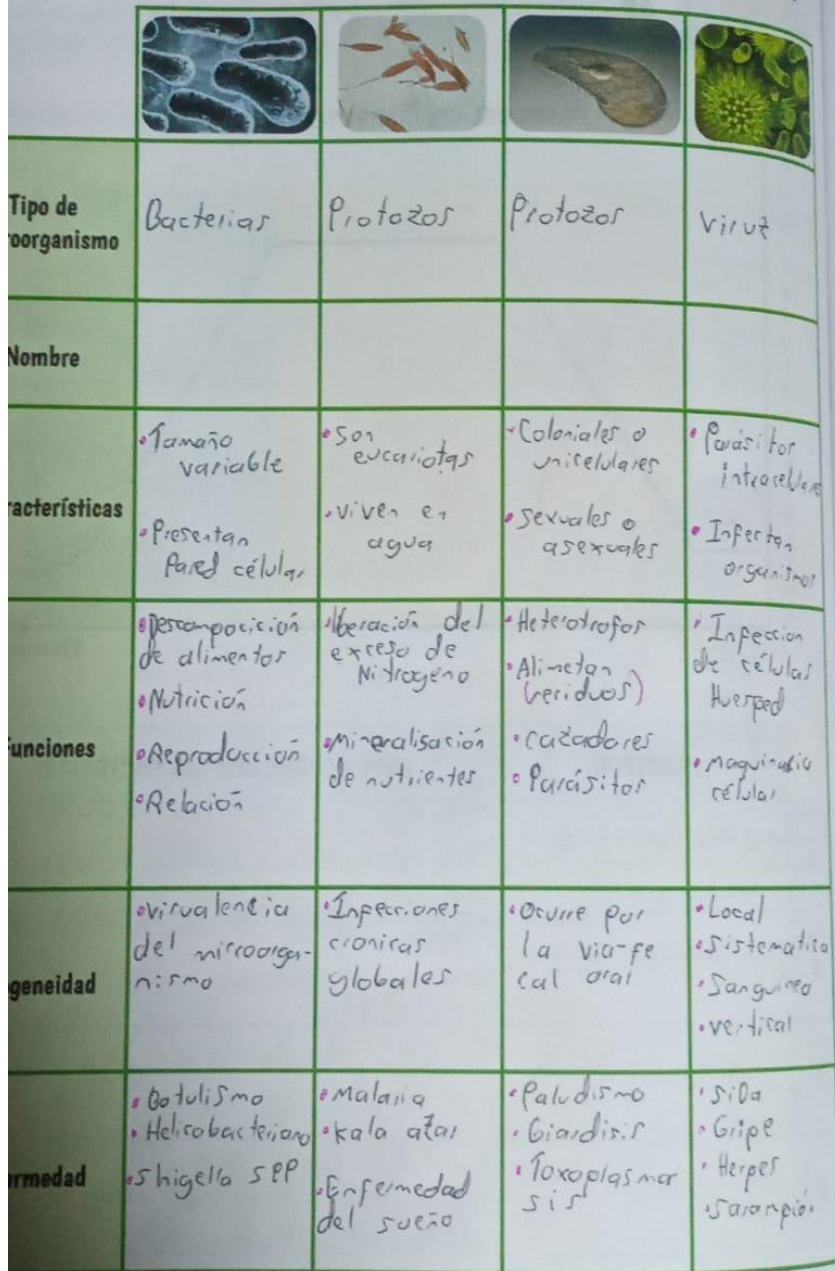 Tipo de
oorganismo
Bacterias
Protozos
Protozos
Viruz
Nombre
racterísticas
•Tamaño
variable
•Presentan
Pared célular
•Son
eucariotas
•viven en
agua
•Coloniales o
unicelulares
•sexuales o
asexuales
•Parásitos
intracelulares
•Infectan
organismos
unciones
•Descomposición
de alimentos
•Nutrición
•Reproducción
•Relación
•liberación del
exceso de
Nitrogeno
•Mineralisación
de nutrientes
•Heterotrofos
•Alimetan
(residuos)
•cazadores
•Parásitos
•Infeccion
de célulás
Huesped
•maquinaria
célular
geneidad
•virualencia
del microorga-
nismo
•Infecciones
cronicas
globales
•Ocurre por
la via-fe
cal oral
•Local
•Sistematica
•Sanguineo
•vertical
ermedad
•Botulismo
•Helicobacteriano
•Shigella SPP
•Malaria
•kala azar
•Enfermedad
del sueño
•Paludismo
•Giardisis
•Toxoplasmor
sis
•SiDa
•Gripe
•Herpes
•Sarampión